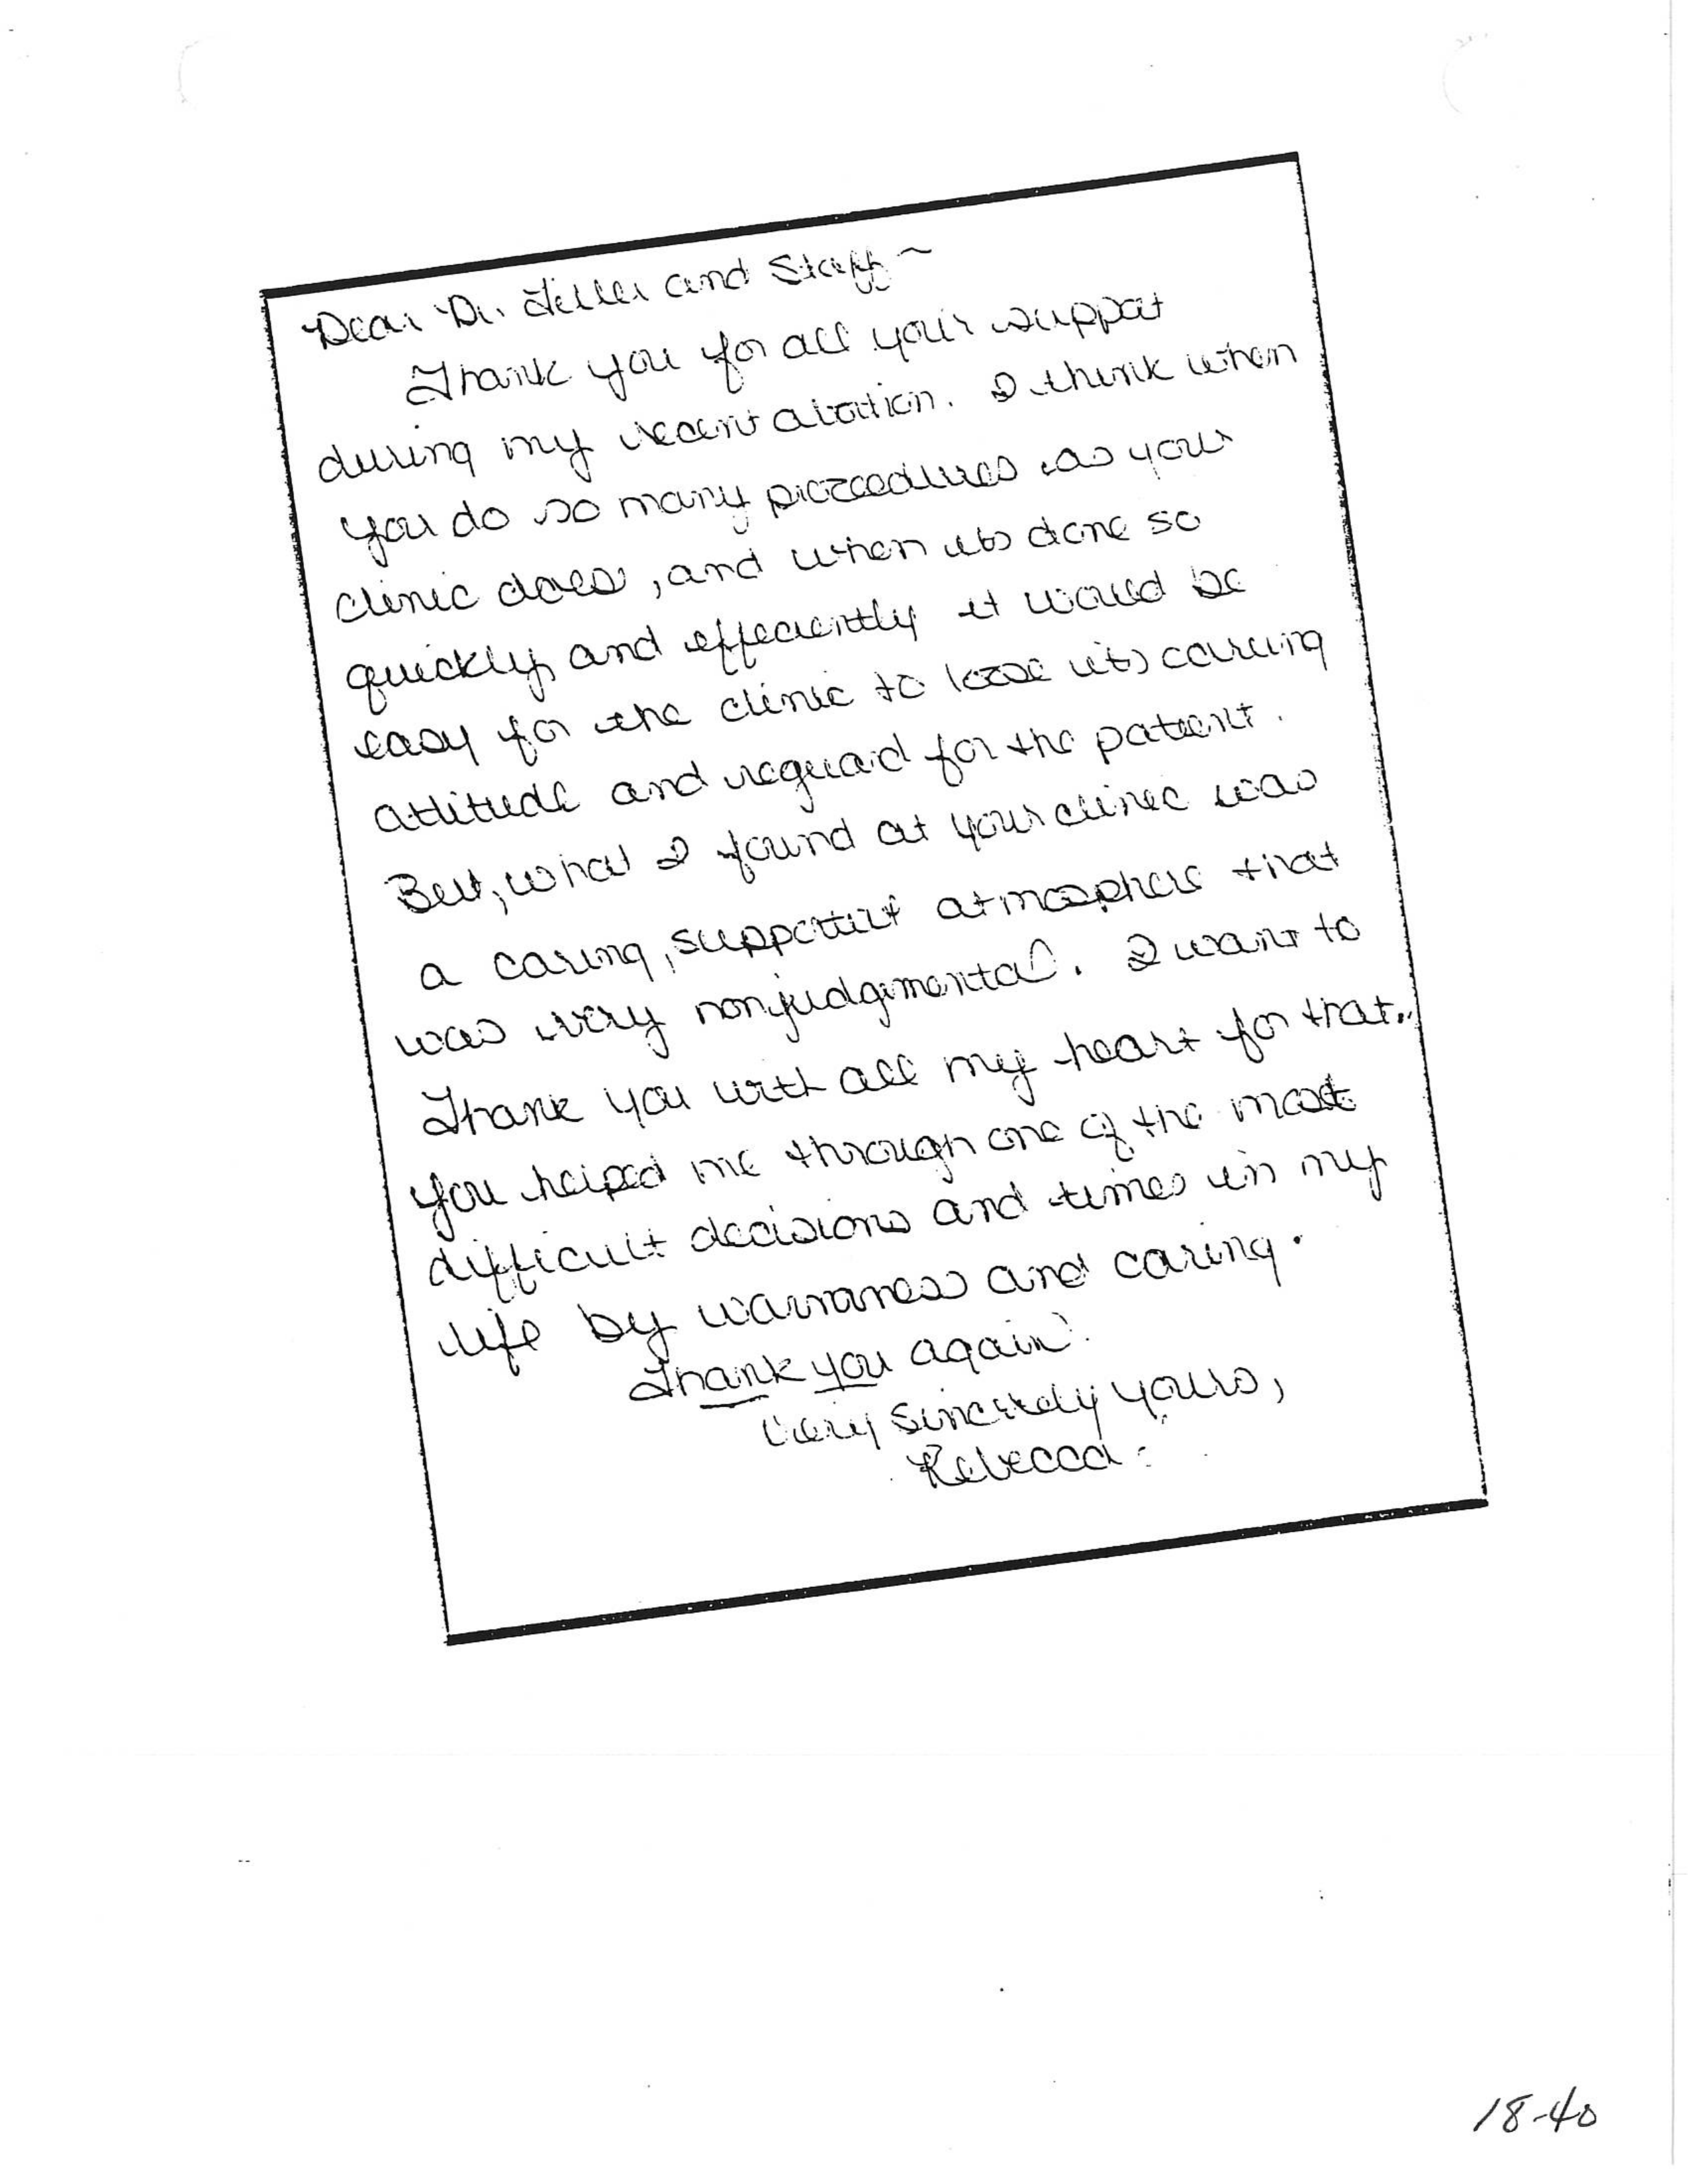 Dear Dr. Tiller and Staff ~
Thank you for all your support
during my recent abortion. I think when
you do so many proceedures as your
clinic does, and when its done so
quickly and effeciently it would be
easy for the clinic to loose its caring
attitude and reguard for the patient.
But, what I found at your clinic was
a caring, supportive atmosphere that
was very nonjudgemental. I want to
Thank you with all my heart for that.
You helped me through one of the most
difficult decisions and times in my
life by warmness and caring.
Thank you again!
Very Sincerely yours,
Rebecca
18-40